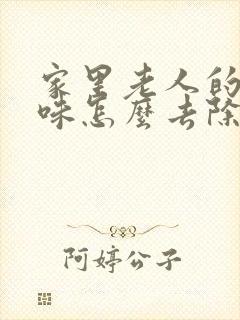 家里老人的
味怎麽去除
阿婷公子